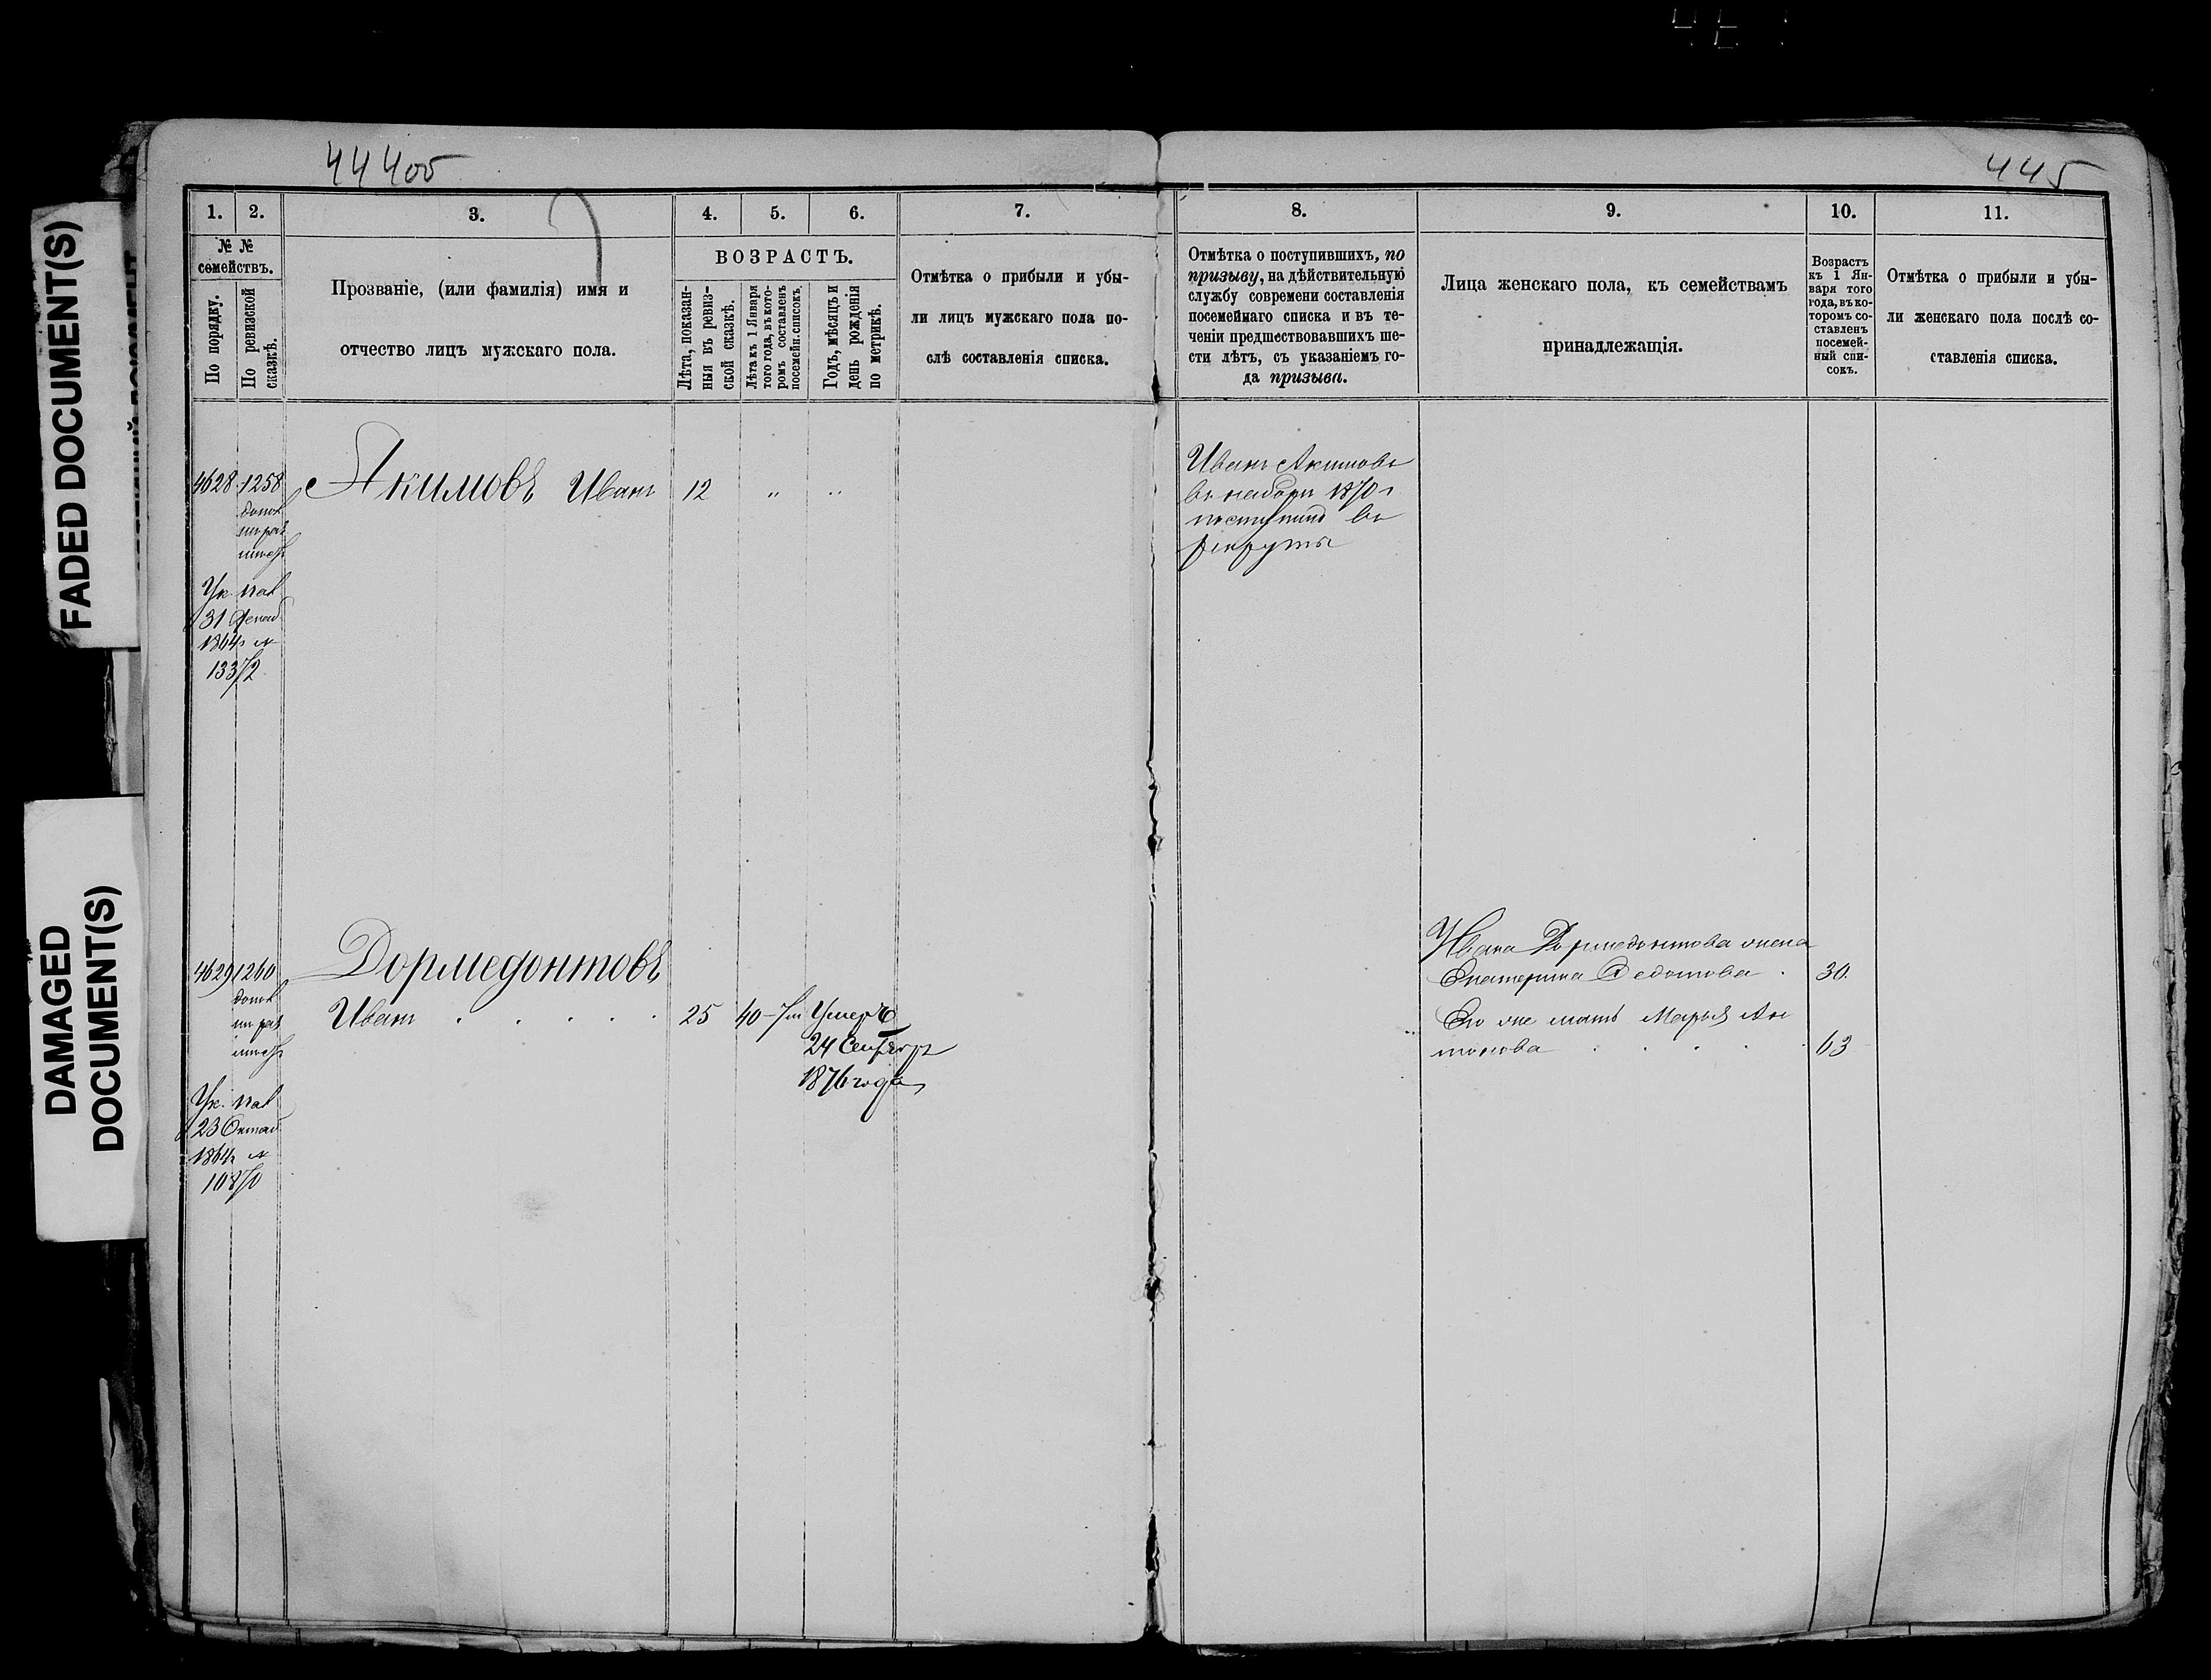 44400
445
1.
2.
3.
4.
5.
6.
7.
8.
9.
10.
11.
№ №
семействъ.
По порядку.
По ревизской
сказкѣ.
Прозваніе, (или фамилія) имя и
отчество лицъ мужскаго пола.
ВОЗРАСТЪ.
Лѣта, показан-
ныя въ ревиз-
ской сказкѣ.
Лѣта къ 1 Января
того года, въ кото-
ромъ составленъ
посемейн. списокъ.
Годъ, мѣсяцъ и
день рожденія
по метрикѣ.
Отмѣтка о прибыли и убы-
ли лицъ мужскаго пола по-
слѣ составленія списка.
Отмѣтка о поступившихъ, по
призыву, на дѣйствительную
службу современи составленія
посемейнаго списка и въ те-
ченіи предшествовавшихъ ше-
сти лѣтъ, съ указаніемъ го-
да призыва.
Лица женскаго пола, къ семействамъ
принадлежащія.
Возрастъ
къ 1 Ян-
варя того
года, въ ко-
торомъ со-
ставленъ
посемей-
ный спи-
сокъ.
Отмѣтка о прибыли и убы-
ли женскаго пола послѣ со-
ставленія списка.
4628 1258 Якимовъ Иванъ 12 " "
Ук. пал
31 Декаб
1864г №
13372
Иванъ Акимовъ
въ наборъ 1870 г
поступилъ въ
рекруты
4629 1260 Дормедонтовъ
Иванъ . . . . . 25 40 Умеръ
24 Сентября
1876 года
Ук. пал
23 Октяб
1864г №
10870
Ивана Дормедонтова жена
Екатерина Федотова . 30.
Его же мать Марья Ан
тонова . . . . 63
FADED DOCUMENT(S)
DAMAGED
DOCUMENT(S)